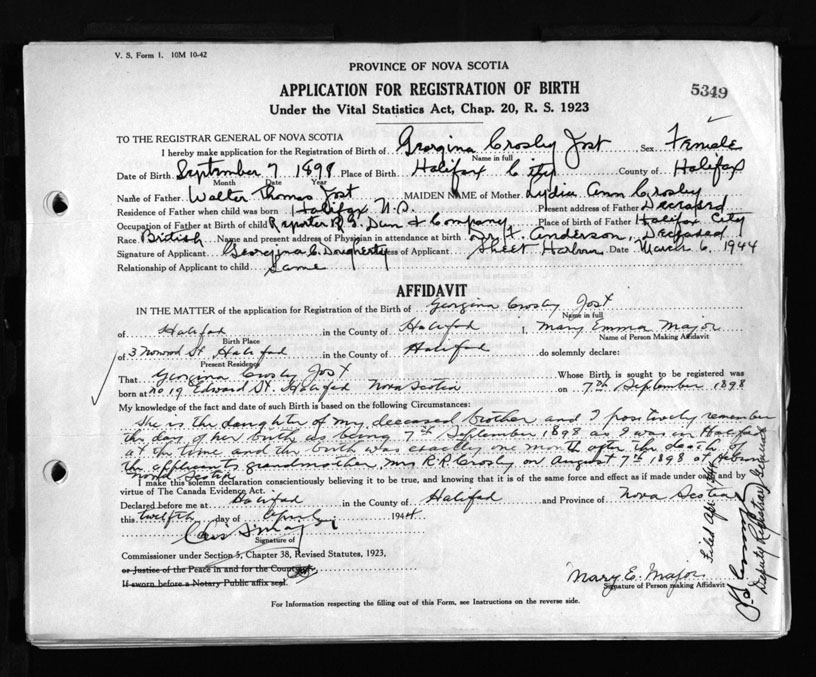 V. S. Form 1. 10M 10-42
PROVINCE OF NOVA SCOTIA
APPLICATION FOR REGISTRATION OF BIRTH
5349
Under the Vital Statistics Act, Chap. 20, R. S. 1923
TO THE REGISTRAR GENERAL OF NOVA SCOTIA
I hereby make application for the Registration of Birth of Georgina Crosby Jost Sex Female
Name in full
Date of Birth September 7 1898 Place of Birth Halifax City County of Halifax
Month Date Year
Name of Father Walter Thomas Jost MAIDEN NAME of Mother Lydia Ann Crosby
Residence of Father when child was born Halifax N.S. Present address of Father Deceased
Occupation of Father at Birth of child Reporter R. G. Dun & Company Place of birth of Father Halifax City
Race British Name and present address of Physician in attendance at birth Anderson, Deceased
Signature of Applicant Georgina C. Dougherty ess of Applicant Sheet Harbour Date March 6, 1944
Relationship of Applicant to child Same
AFFIDAVIT
IN THE MATTER of the application for Registration of the Birth of Georgina Crosby Jost
Name in full
of Halifax in the County of Halifax I, Mary Emma Major
Birth Place Name of Person Making Affidavit
of 3 St, Halifax in the County of Halifax do solemnly declare:
Present Residence
That Georgina Crosby Jost Whose Birth is sought to be registered was
born at No 19 Edward St. Halifax Nova Scotia on 7th September 1898
My knowledge of the fact and date of such Birth is based on the following Circumstances:
She is the daughter of my deceased brother and I positively remember
the day of her birth as being 7th September 1898 as I was in Halifax
at the time and the birth was exactly one month after the death of
the applicants grandmother, Mrs R.R. Crosby on August 7th 1898 at Hebron
Nova Scotia
I make this solemn declaration conscientiously believing it to be true, and knowing that it is of the same force and effect as if made under oath and by
virtue of The Canada Evidence Act.
Declared before me at Halifax in the County of Halifax and Province of Nova Scotia
this twelfth day of April 1944
Signature of
Commissioner under Section 5, Chapter 38, Revised Statutes, 1923,
or Justice of the Peace in and for the County of
If sworn before a Notary Public affix seal.
Mary E. Major
Signature of Person making Affidavit
For Information respecting the filling out of this Form, see Instructions on the reverse side.
Filed Apr 1944
Deputy Registrar General